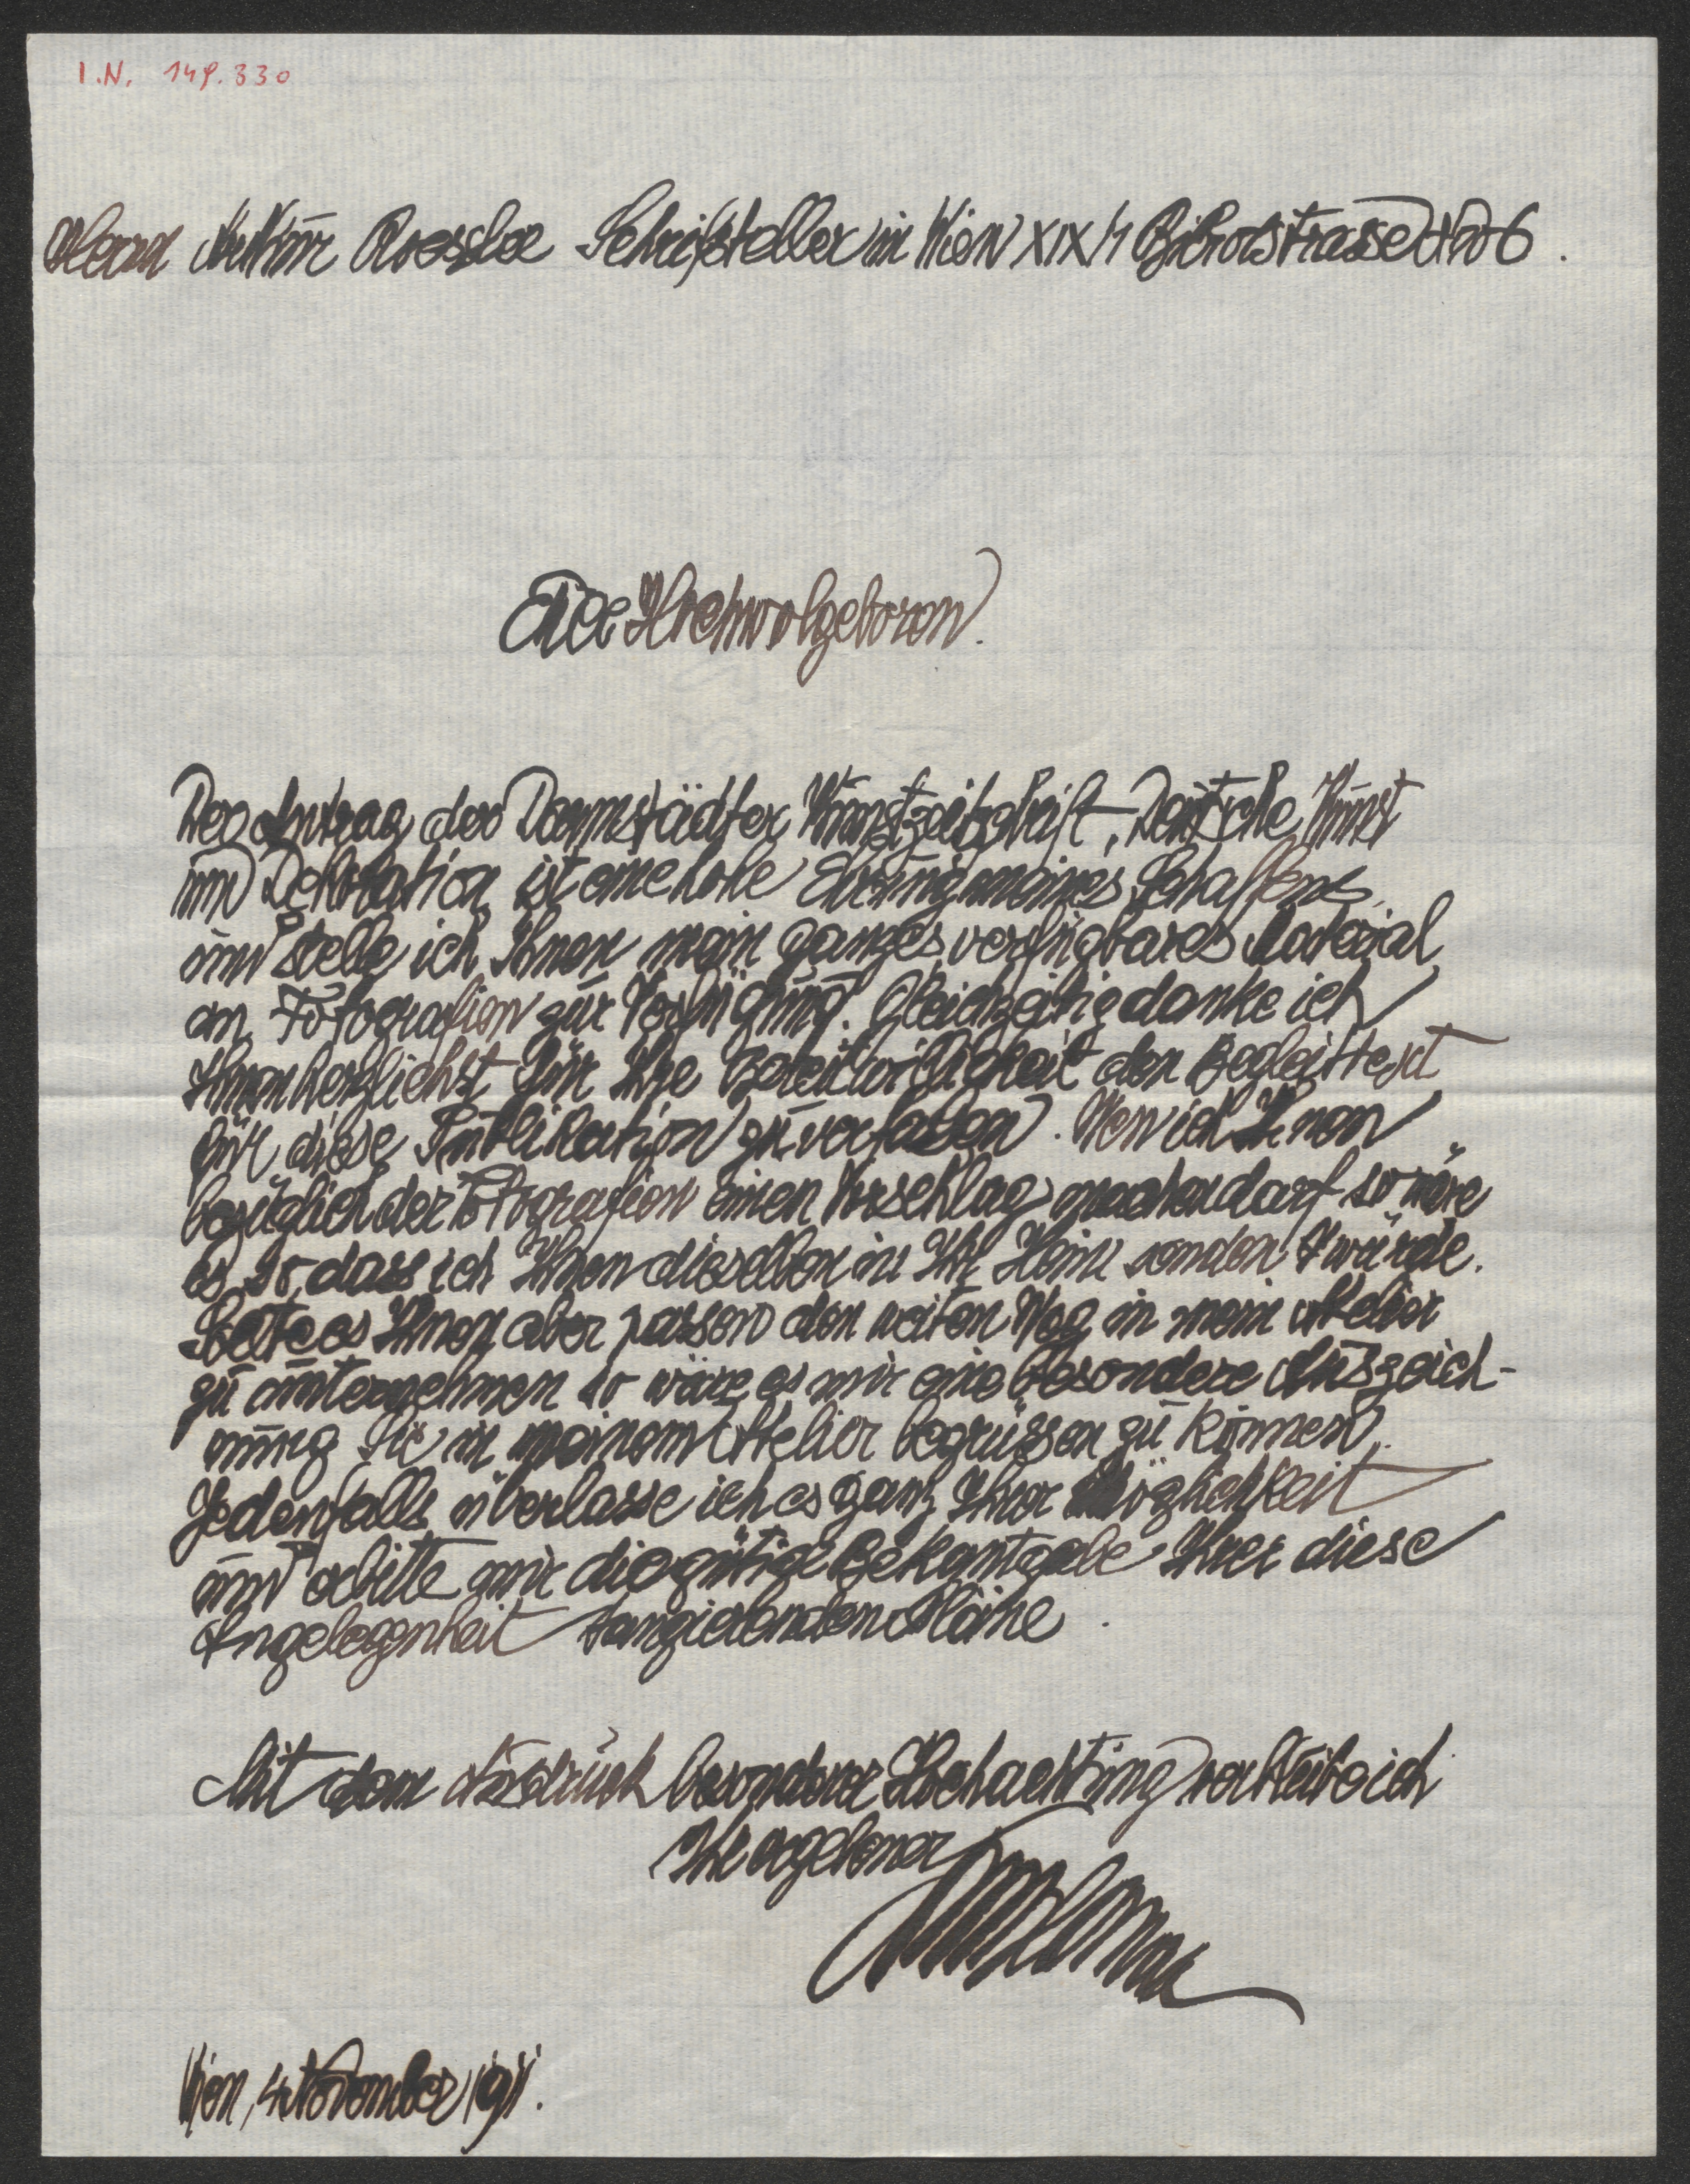 I.N. 149.330
Herrn Arthur Roessler Schriftsteller in Wien XIX/1 Billrothstrasse No 6.
Euer Hochwolgeboren.
Der Antrag der Darmstädter Kunstzeitschrift, Deutsche Kunst
und Dekoration ist eine hohe Ehrung meines Schaffens,
und stelle ich Ihnen mein ganzes verfügbares Material
an Fotografien zur Verfügung. Gleichzeitig danke ich
Ihnen herzlichst für Ihre Bereitwilligkeit den Begleittext
für diese Publikation zu verfassen. Wen ich Ihnen
bezüglich der Fotografien einen Vorschlag machen darf so wäre
es so, dass ich Ihnen dieselben in Ihr Heim senden würde.
Solte es Ihnen aber passen den weiten Weg in mein Atelier
zu unternehmen so wäre es mir eine besondere Auszeich-
nung Sie in meinem Atelier begrüssen zu können.
Jedenfalls überlasse ich es ganz Ihrer Möglichkeit
und erbitte mir die gütige Bekantgabe Ihrer diese
Angelegenheit tangierenden Pläne.
Mit dem Ausdruck besonderer Hochachtung verbleibe ich
Ihr ergebener
Wien, 4 November 1911.